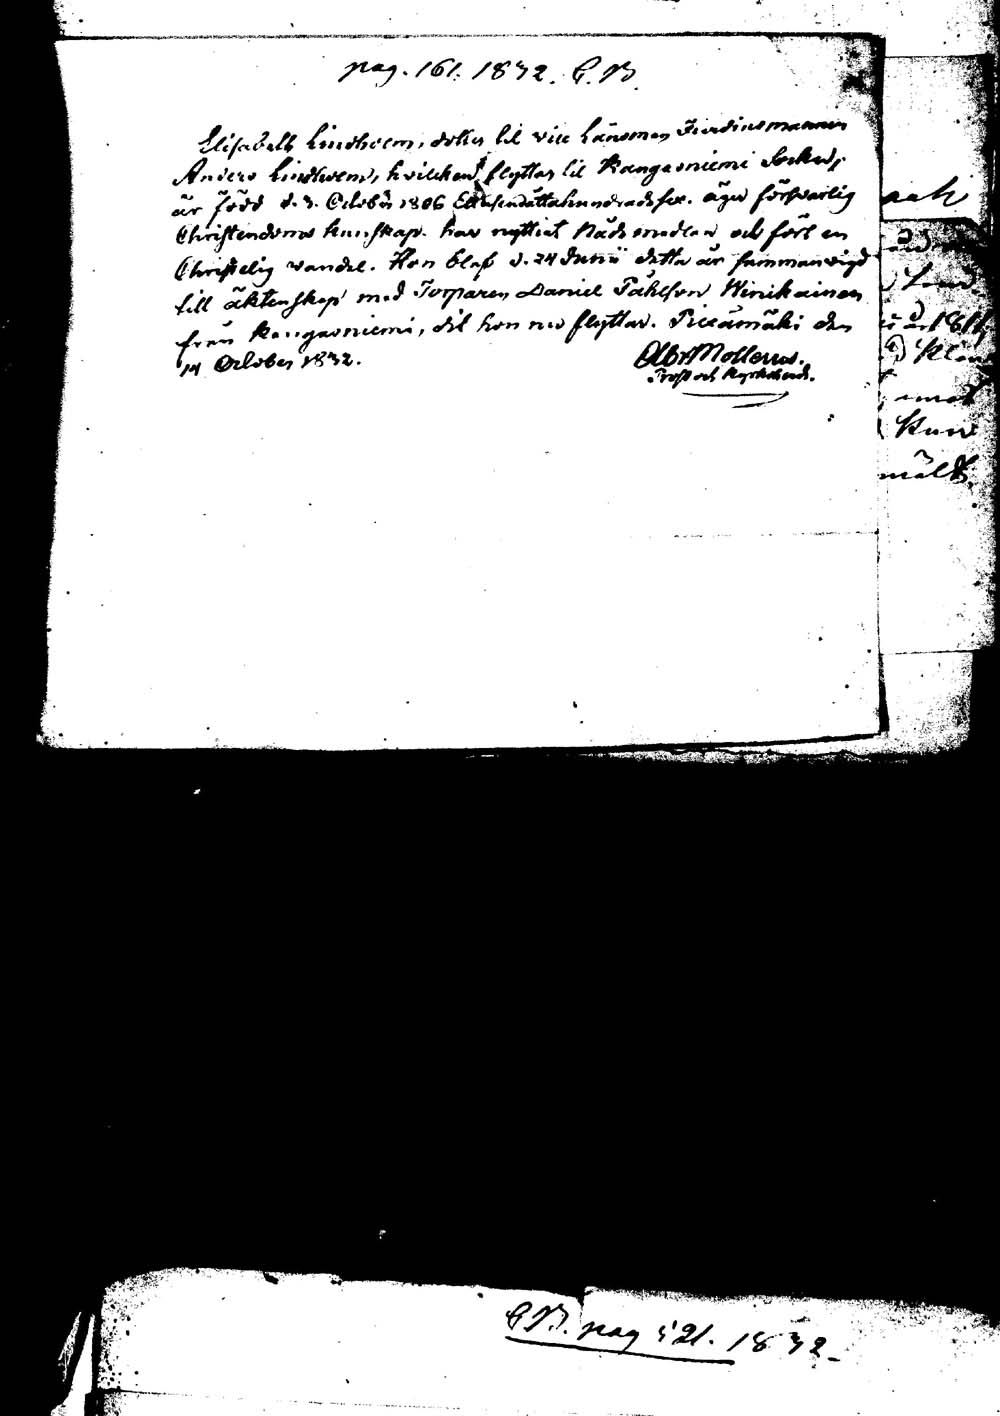 pag. 161. 1832. C. B.
Elisabeth Lindholm, dotter til vice Länsman Fierdingsmannen
Anders Lindholm, hvilken flyttar til Kangasniemi Socken,
är född d. 3. October 1806 Ettusendåttahundradesex. äger försvarlig
Christendoms kunskap. har nyttiat Nådemedlen och fört en
Christelig vandel. Hon blef d. 24 Junii detta år sammanvigd
till äktenskap med Torparen Daniel Påhlson Winikainen
från Kangasniemi, dit hon nu flyttar. Piexämäki den
14 October 1832.
Albr Mollerus.
Prost och Kyrkoherde.
är 1811,
Klän
emot
Kuns
mält,
CB. pag 521. 1832